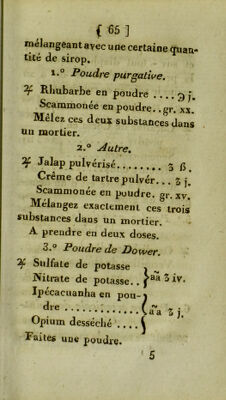 [ 65 ]
mélangeant avec une certaine quan-
tité de sirop.
1.º Poudre purgative.
♃ Rhubarbe en poudre .... ℈ j.
Scammonée en poudre.. gr. xx.
Mêlez ces deux substances dans
un mortier.
2.º Autre.
♃ Jalap pulvérisé........ ʒ ß.
Crême de tartre pulvér... ʒ j.
Scammonée en poudre. gr. xv.
Mélangez exactement ces trois
substances dans un mortier.
A prendre en deux doses.
3.º Poudre de Dower.
♃ Sulfate de potasse
Nitrate de potasse.. } aã ʒ iv.
Ipécacuanha en pou-
dre ............. } aã ʒ j.
Opium desséché ....
Faites une poudre.
5